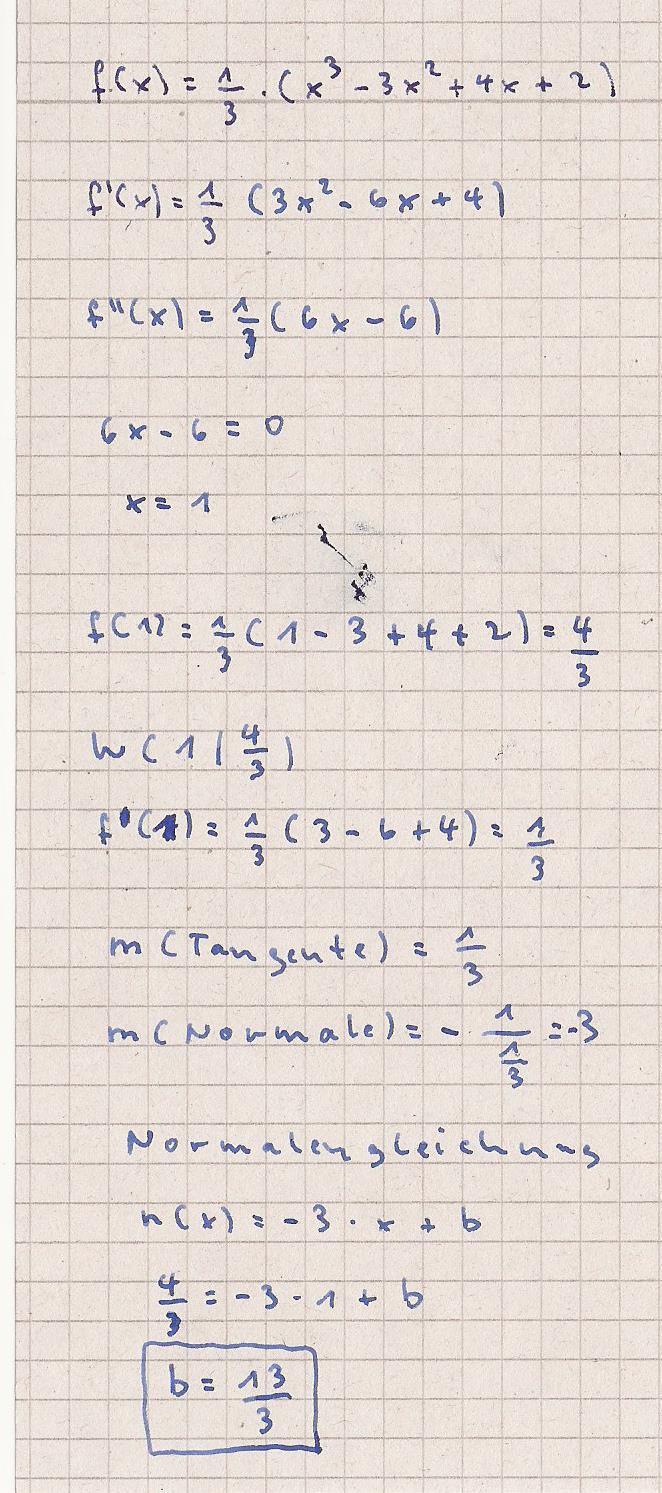 f(x) = 1/3 · (x³ - 3x² + 4x + 2)
f'(x) = 1/3 (3x² - 6x + 4)
f''(x) = 1/3 (6x - 6)
6x - 6 = 0
x = 1
f(1) = 1/3 (1 - 3 + 4 + 2) = 4/3
W(1 | 4/3)
f'(1) = 1/3 (3 - 6 + 4) = 1/3
m(Tangente) = 1/3
m(Normale) = - 1/(1/3) = -3
Normalengleichung
n(x) = -3 · x + b
4/3 = -3 · 1 + b
b = 13/3